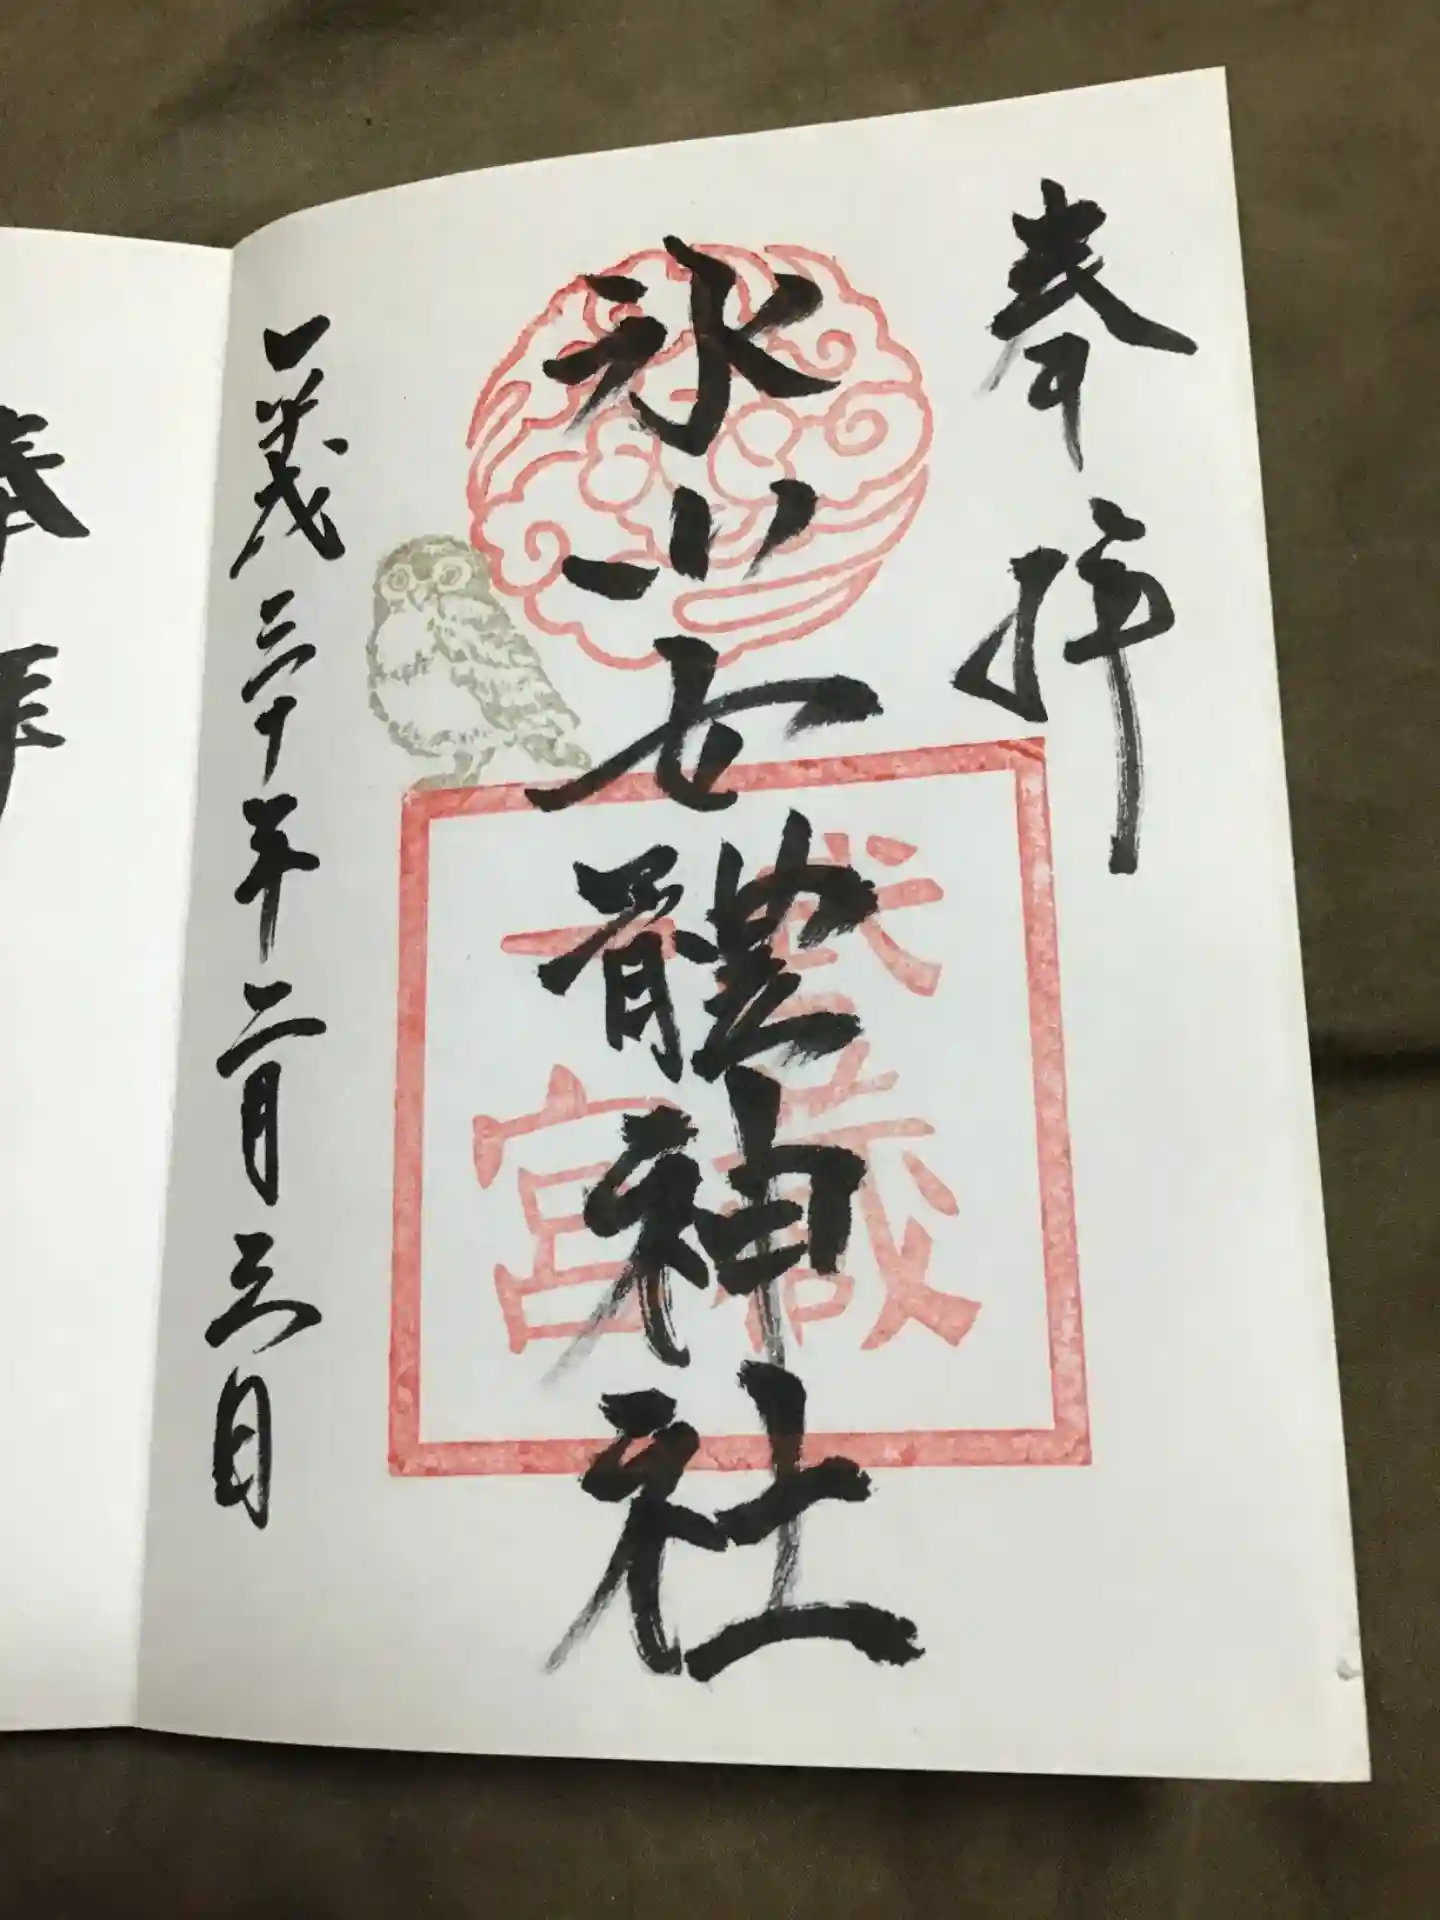 奉拝
氷川女體神社
武藏
一宮
平成三十年二月三日
奉拝